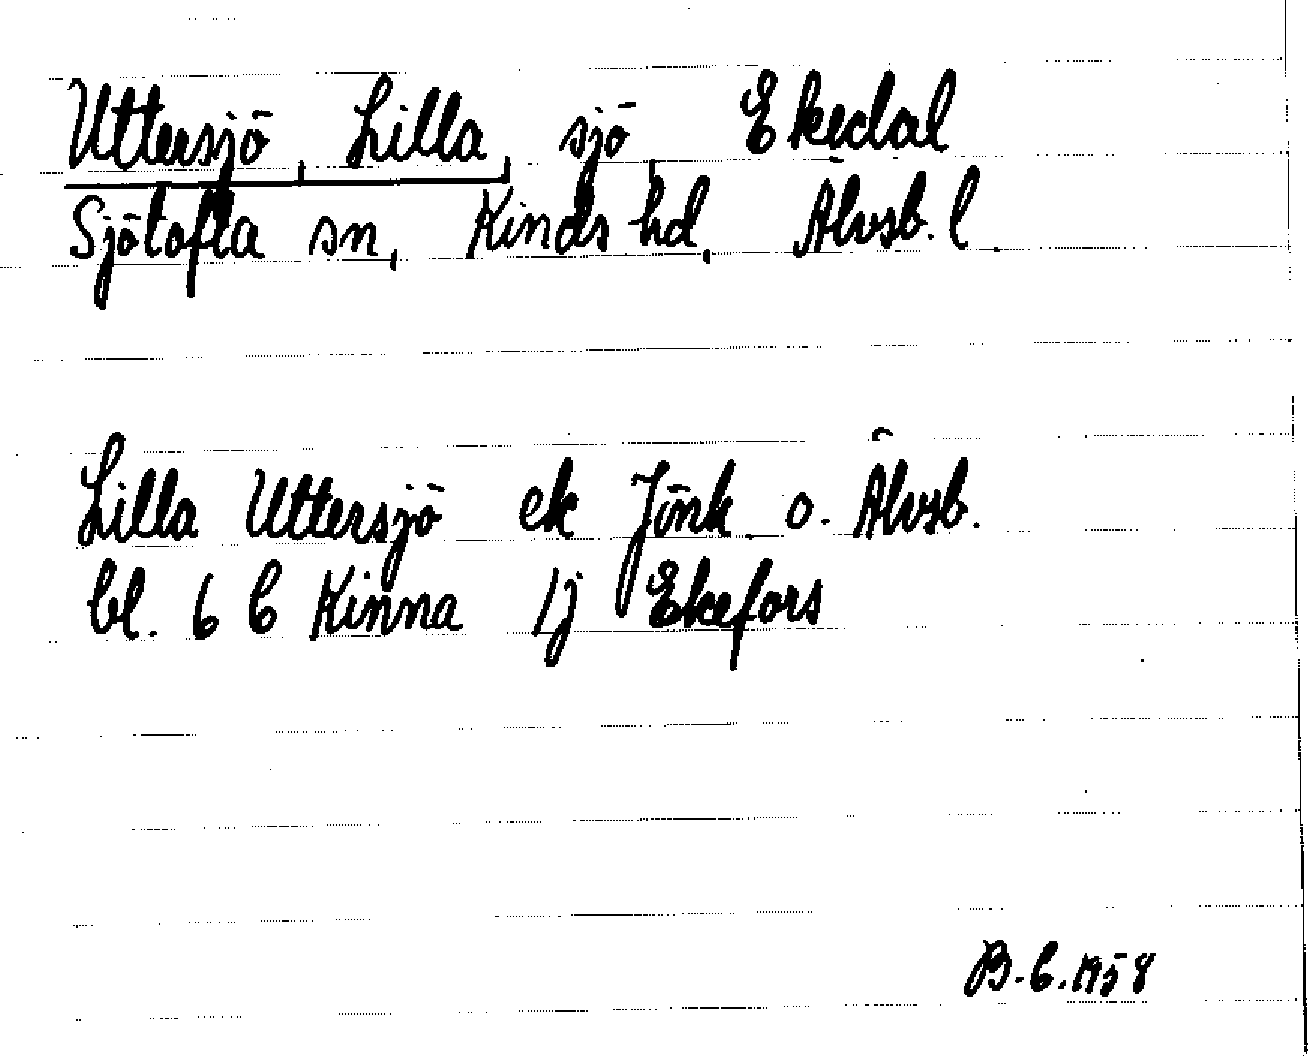 Uttersjö, Lilla, sjö, Ekedal
Sjötofta sn, Kinds hd, Älvsb. l.
Lilla Uttersjö ek Jönk. o. Älvsb.
bl. 6 C Kinna 1j Ekefors
B.C. 1958